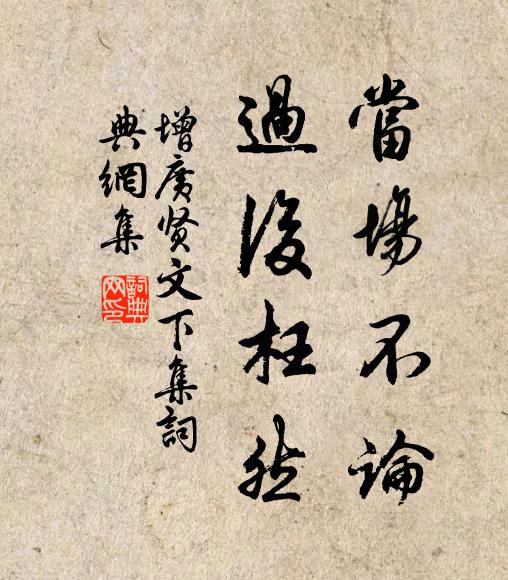 當場不論
過後枉然
增廣贤文下集詞
典網集
詞典
网印